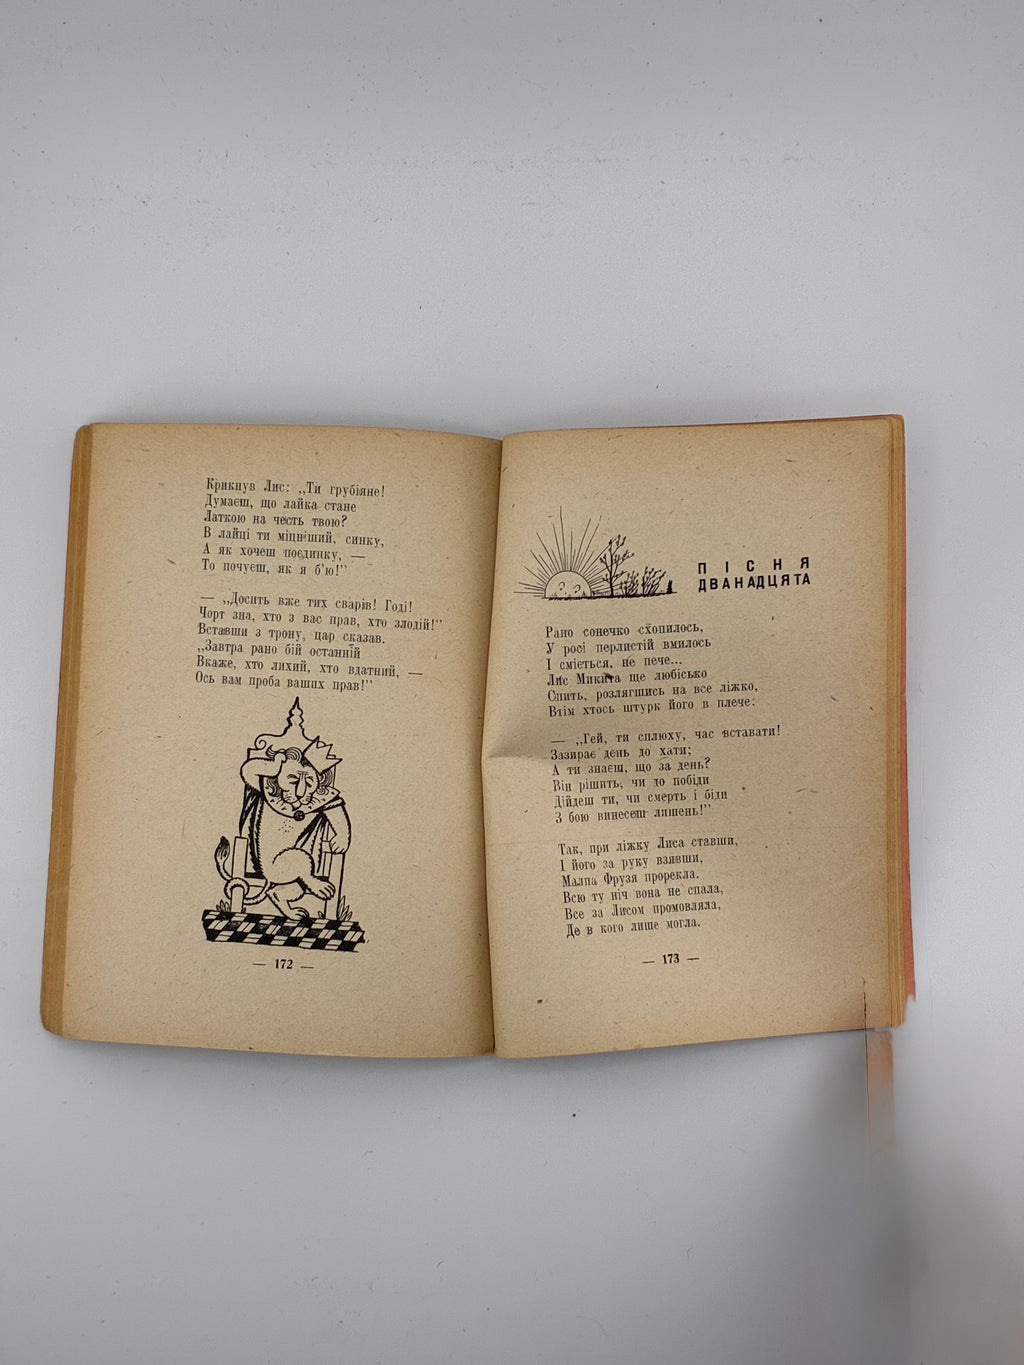 Крикнув Лис: „Ти грубіяне!
Думаєш, що лайка стане
Латкою на честь твою?
В лайці ти міцніший, синку,
А як хочеш поєдинку, —
То почуєш, як я б'ю!"
— „Досить вже тих сварів! Годі!
Чорт зна, хто з вас прав, хто злодій!"
Вставши з трону, цар сказав.
„Завтра рано бій останній
Вкаже, хто лихий, хто вдатний, —
Ось вам проба ваших прав!"
— 172 —
ПІСНЯ
ДВАНАДЦЯТА
Рано сонечко схопилось,
У росі перлистій вмилось
І сміється, не пече...
Лис Микита ще любісько
Спить, розлягшись на все ліжко,
Втім хтось штурк його в плече:
— „Гей, ти сплюху, час вставати!
Зазирає день до хати;
А ти знаєш, що за день?
Він рішить, чи до побіди
Дійдеш ти, чи смерть і біди
З бою винесеш лишень!"
Так, при ліжку Лиса ставши,
І його за руку взявши,
Малпа Фрузя прорекла.
Всю ту ніч вона не спала,
Все за Лисом промовляла,
Де в кого лише могла.
— 173 —